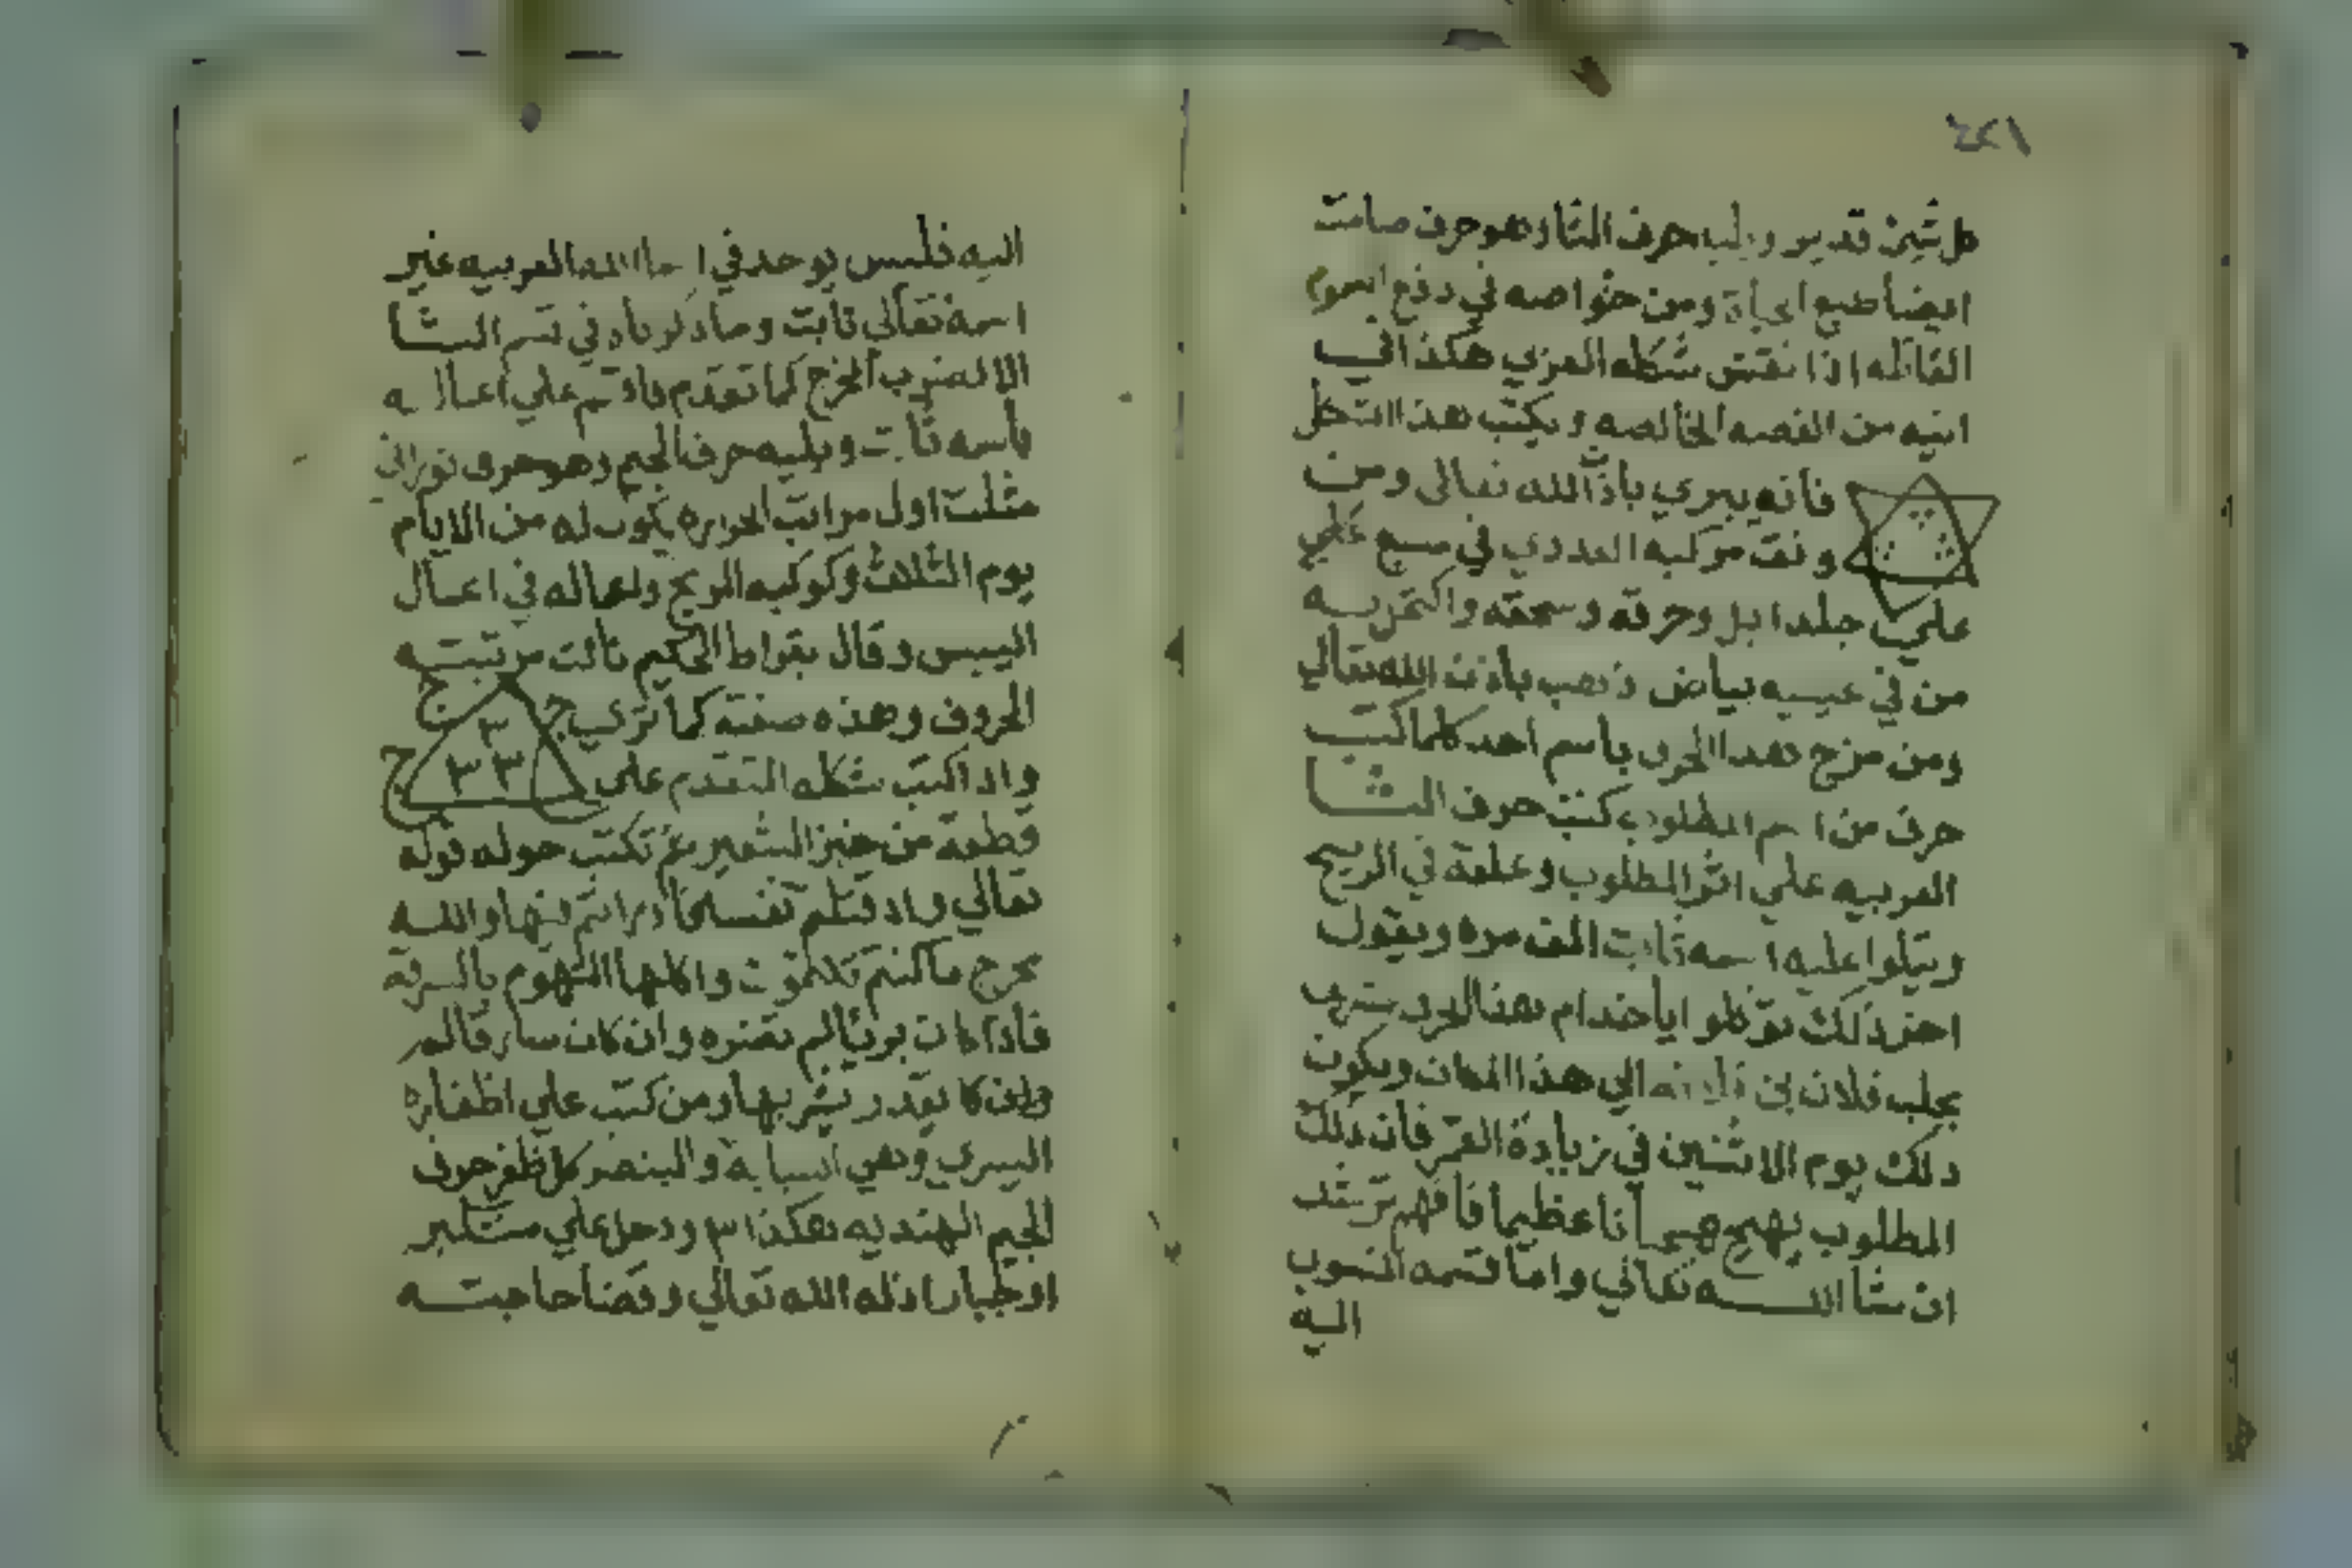 ٤٢١
كل شئ قدير ويليه حرف الثا وهو حرف صامت
ايضا طبع الحياة ومن خواصه في دفع السموم
القاتله اذا نقش شكله العربي هكذا في
انيه من الفضه الخالصه ويكتب هذا الشكل
فانه يبري باذن الله تعالى ومن
وفق مركبه العددي في مسبع علي
علي جلد ابل وحرقه وسحقه واكتحل به
من في عينيه بياض ذهب باذن الله تعالي
ومن مزج هذا الحرف باسم احد كلما كتب
حرف من اسم المطلوب كتب حرف الثا
العربيه علي اثر المطلوب وعلقه في الريح
ويتلوا عليه اسمه ثابت الف مره ويقول
اخر ذلك توكلوا ياخدام هذا الحرف
بجلب فلان بن فلانه الي هذا المكان ويكون
ذلك يوم الاثنين في زيادة القمر فان ذلك
المطلوب يهيج هيجانا عظيما فافهم ترشد
ان شا الله تعالي واما قسمه المنسوب
اليه
اليه فليس يوجد في اسما الله العربيه غير
اسمه تعالى ثابت وما ذكرناه في قسم الثا
الا لضرب المخرج كما تقدم فاقسم علي اعماله
باسمه ثابت ويليه حرف الجيم وهو حرف نوراني
مثلث اول مراتب الحراره يكون له من الايام
يوم الثلاث وكوكبه المريخ واعماله في اعمال
اليبس وقال بقراط الحكيم ثالث مرتبته
الحروف وهذه صفته كما تري ج ج
٣
ج ٣ ٣
واذ اكتب شكله المتقدم على
قطعة من خبز الشعير ثم تكتب حوله قوله
تعالي واذ قتلتم نفسا فادراتم فيها والله
مخرج ماكنتم تكتمون واكلها المتهوم بالسرقه
فاذا كان بريئا لم تضره وان كان سارقا لم
يقدر يشربها ومن كتب علي اظفاره
اليسري وهي السبابه والبنصر كل ظفر حرف
الجيم الهنديه هكذا ٣ ودخل علي متكبر
او جبار اذله الله تعالي وقضا حاجته